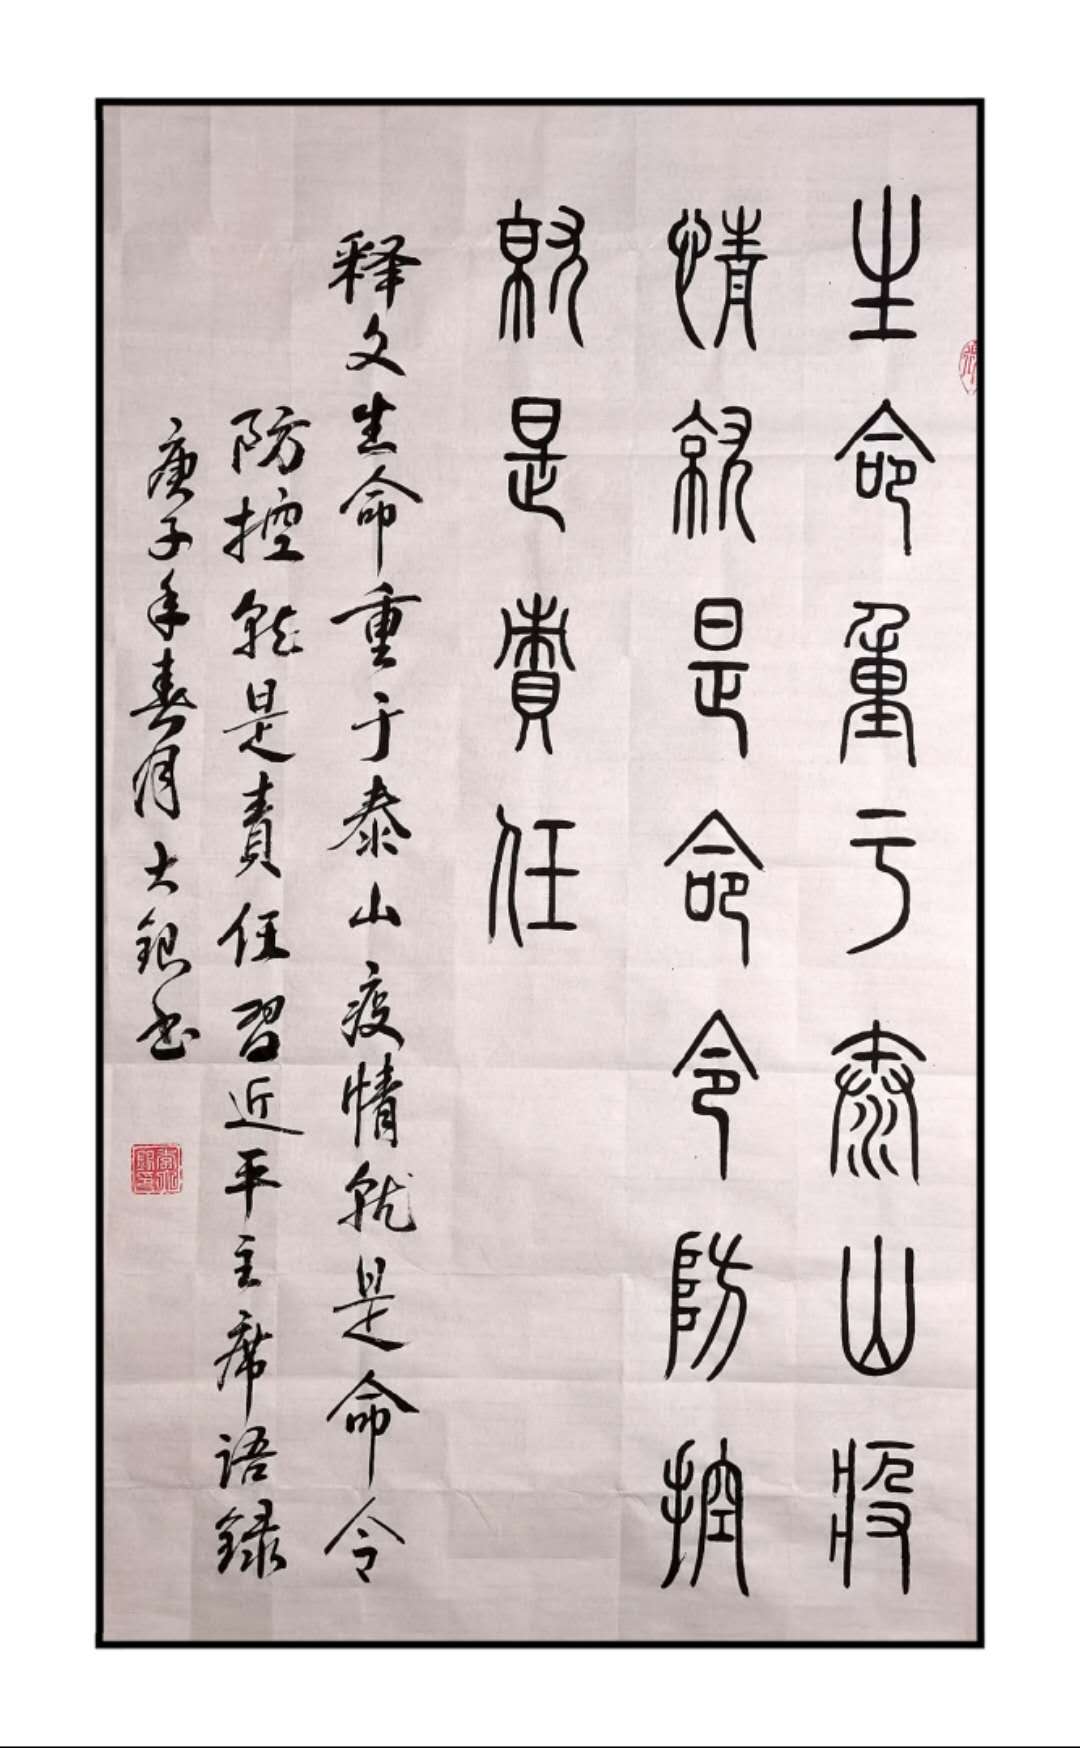 生命重亏泰山疫
情就是命令防控
就是责任
释文生命重于泰山疫情就是命令
防控就是責任習近平主席語録
庚子年春月大銀书